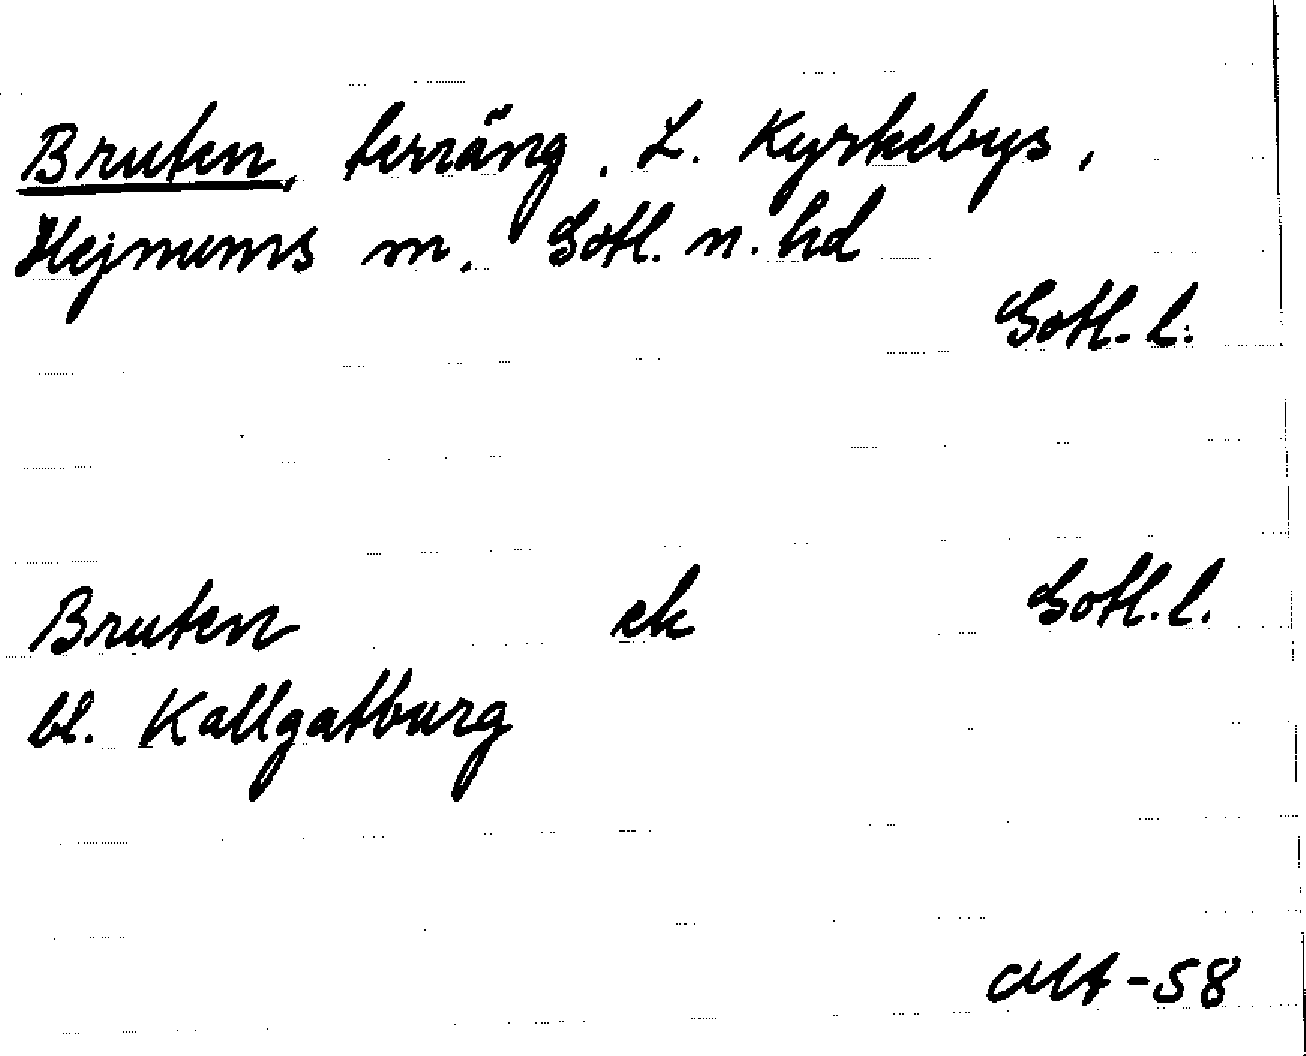 Bruten, terräng. L. Kyrkebys,
Hejnums sn. Gotl. n. hd
Gotl. l.
Bruten ek Gotl. l.
bl. Kallgatburg
-58